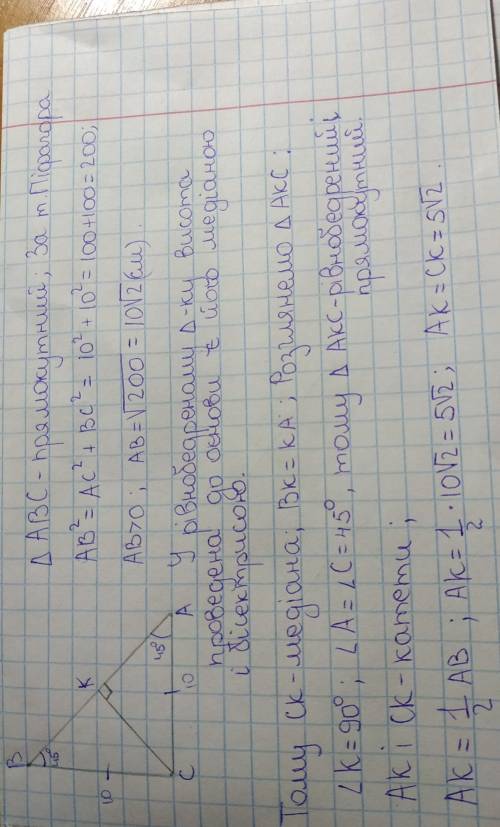 Δ ABC - прямокутний; За т. Піфагора
AB² = AC² + BC² = 10² + 10² = 100+100 = 200;
AB>0; AB = √200 = 10√2 (см).
У рівнобедреному Δ-ку висота
проведена до основи є його медіаною
і бісектрисою.
B
45°
K
10
45°
C
10
A
Тому CK - медіана; BK = KA; Розглянемо Δ AKC:
∠K = 90°; ∠A = ∠C = 45°, тому Δ AKC - рівнобедрений і
прямокутний.
AK і CK - катети;
AK = 1/2 AB; AK = 1/2 · 10√2 = 5√2; AK = CK = 5√2.